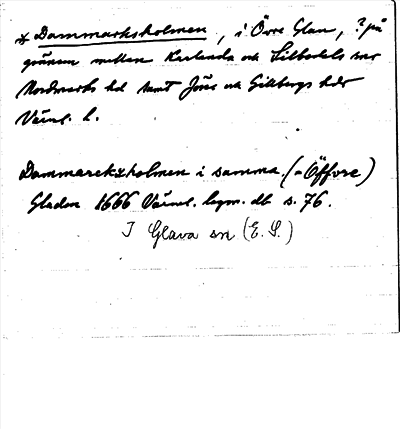 * Dammarksholmen, i Övre Glan, ? på
gränsen mellan Karlanda och Silbodals snr
Nordmarks hd samt Jöse och Gillbergs hdr
Värml. l.
Dammareksholmen i samma (= Öffvre)
Gladen 1666 Värml. legm. db s. 76.
I Glava sn (E. S.)